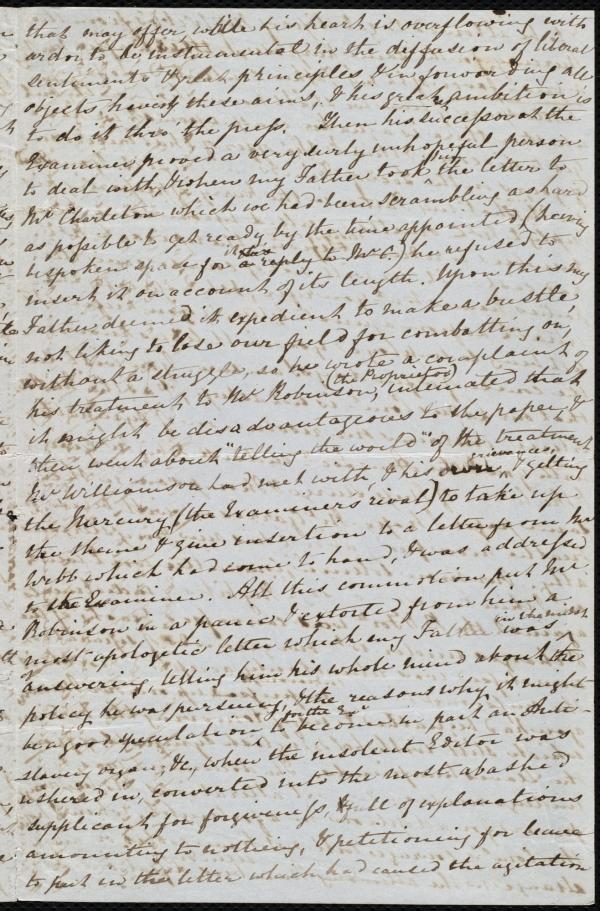 that may offer, while his heart is overflowing with
ardor to be instrumental in the diffusion of liberal
sentiments & great principles & in forwarding all
objects having these aims, & his great ambition is
to do it thro' the press. Then his successor at the
Examiner proved a very surly unhopeful person
to deal with, & when my Father took up the letter to
Mr Charleton which we had been scrambling as hard
as possible to get ready by the time appointed, (having
bespoken space for a reply to Mr C.) he refused to
insert it on account of its length. Upon this my
Father deemed it expedient to make a bustle,
not liking to lose our field for combatting on,
without a struggle, so he wrote a complaint of
his treatment to Mr Robinson, (the Proprietor) intimated that
it might be disadvantageous to the paper, &
then went about "telling the world" of the treatment
Mr Williamson had met with, & his grievances, & getting
the Mercury (the Examiners rival) to take up
the theme & give insertion to a letter from Mr
Webb which had come to hand, & was addressed
to the Examiner. All this commotion put Mr
Robinson in a panic & extorted from him a
most apologetic letter which my Father was in the midst
of answering, telling him his whole mind about the
policy he was pursuing, & the reasons why it might
be a good speculation for the Exr to become in part an Anti-
slavery organ, &c, when the insolent Editor was
ushered in, converted into the most abashed
supplicant for forgiveness, full of explanations
amounting to nothing, & petitioning for leave
to put in the letter which had caused the agitation